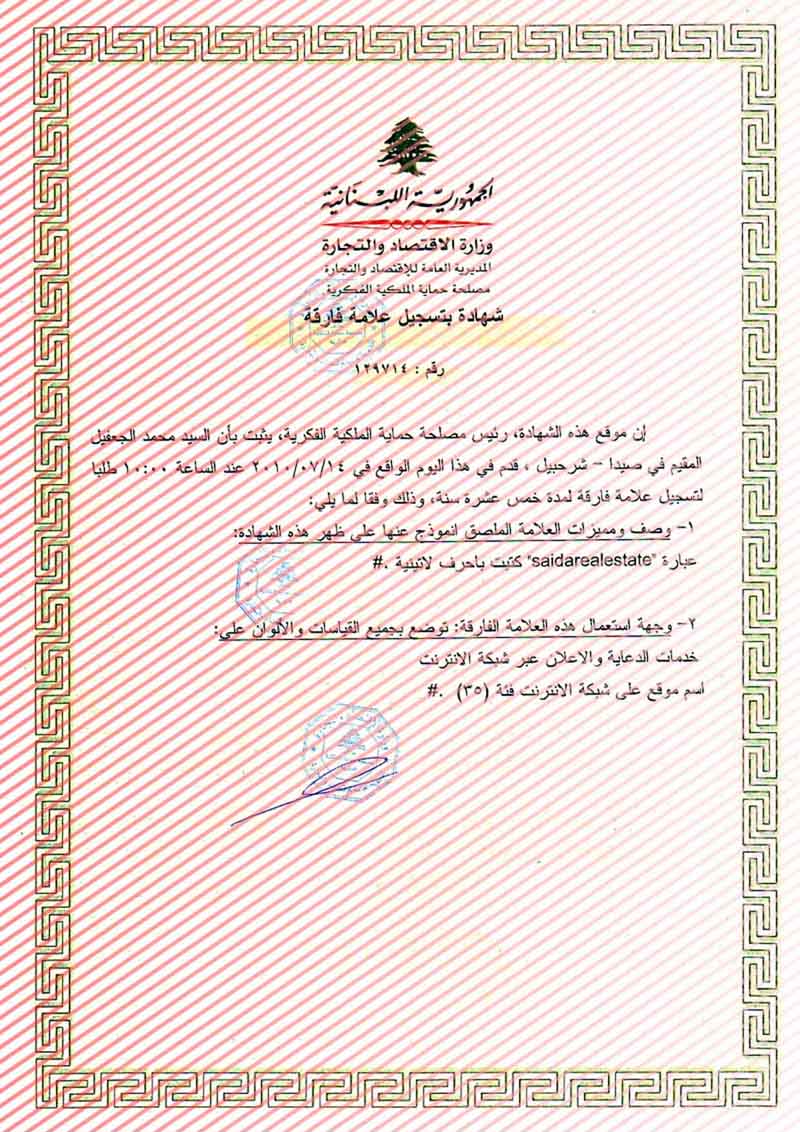 الجمهورية اللبنانية
وزارة الاقتصاد والتجارة
المديرية العامة للاقتصاد والتجارة
مصلحة حماية الملكية الفكرية
شهادة بتسجيل علامة فارقة
رقم : ١٢٩٧١٤
إن موقع هذه الشهادة، رئيس مصلحة حماية الملكية الفكرية، يثبت بأن السيد محمد الجعفيل
المقيم في صيدا – شرحبيل ، قدم في هذا اليوم الواقع في ٢٠١٠/٠٧/١٤ عند الساعة ١٠:٠٠ طلبا
لتسجيل علامة فارقة لمدة خمس عشرة سنة، وذلك وفقا لما يلي:
١– وصف ومميزات العلامة الملصق انموذج عنها على ظهر هذه الشهادة:
عبارة "saidarealestate" كتبت بأحرف لاتينية .#
٢– وجهة استعمال هذه العلامة الفارقة: توضع بجميع القياسات والألوان على:
خدمات الدعاية والاعلان عبر شبكة الانترنت
اسم موقع على شبكة الانترنت فئة (٣٥) .#